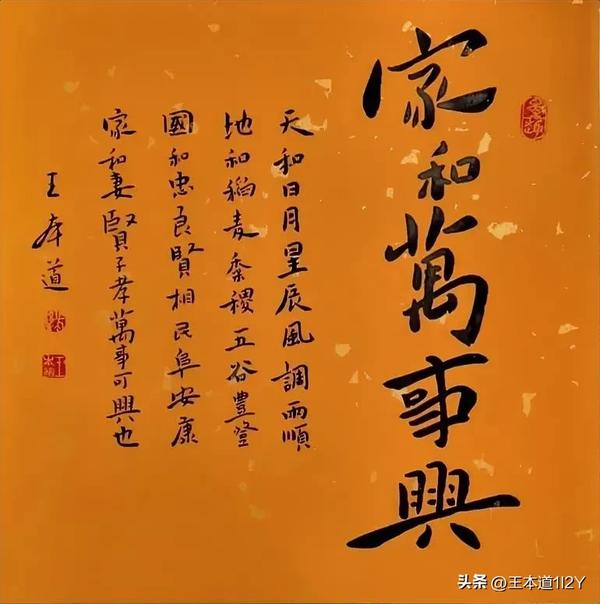 家和萬事興
天和日月星辰風調雨順
地和稻麦黍稷五谷豐登
國和忠良賢相民阜安康
家和妻賢子孝萬事可興也
王本道
头条 @王本道1I2Y